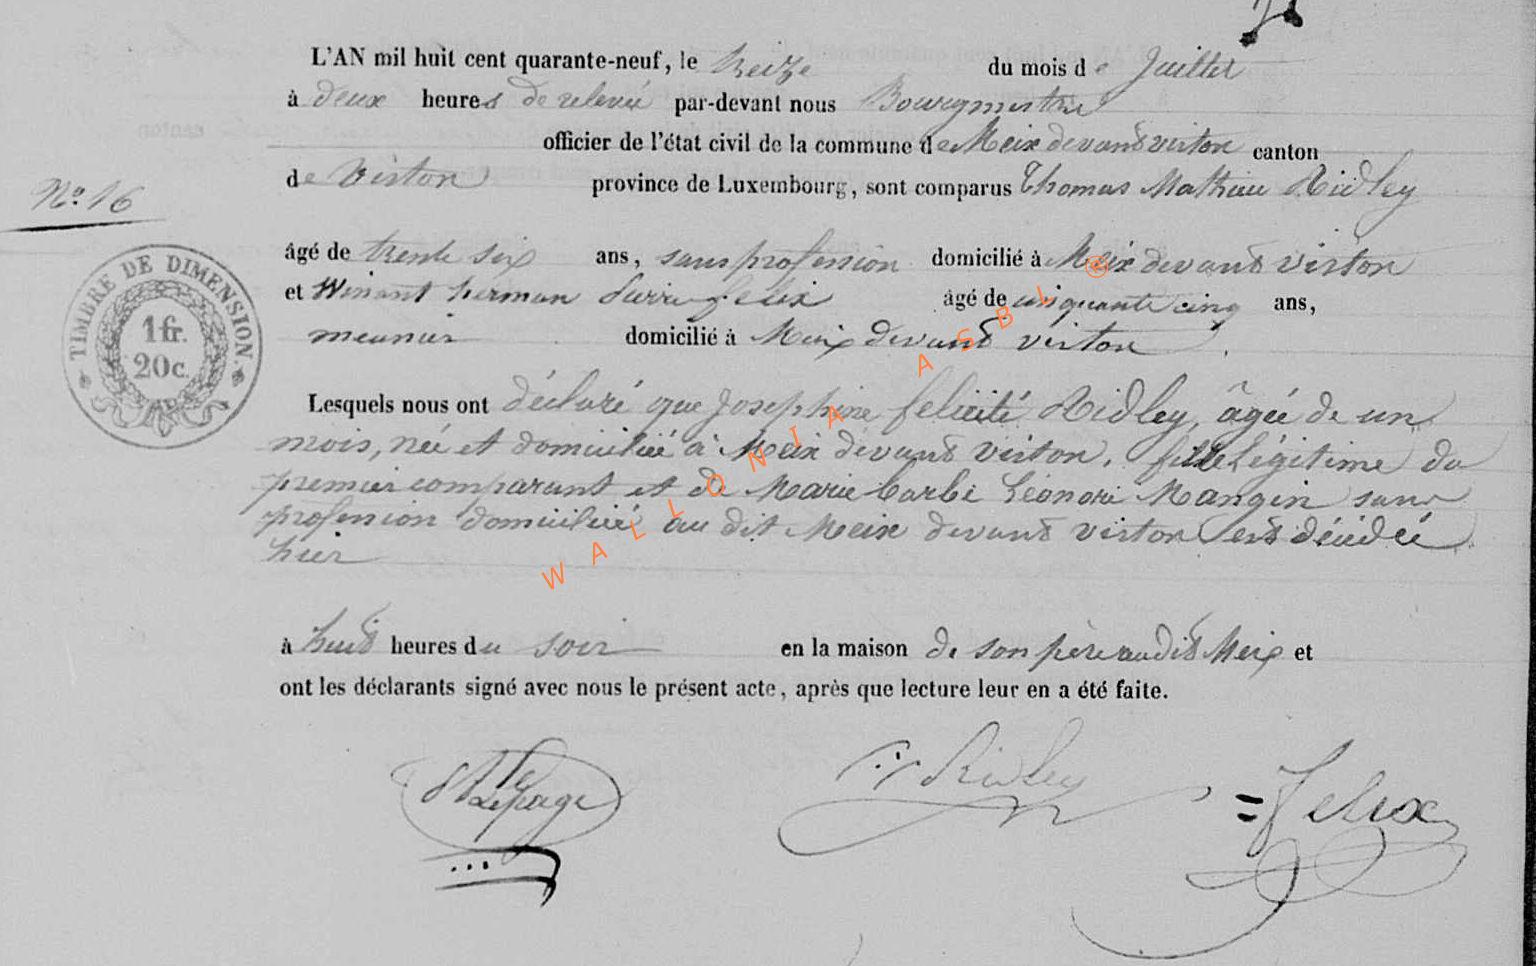 L'AN mil huit cent quarante-neuf, le treize du mois de Juillet
à deux heures de relevée par-devant nous Bourgmestre
officier de l'état civil de la commune de Meix devant virton canton
de Virton province de Luxembourg, sont comparus Thomas Mathieu Ridley
N.º 16
âgé de trente six ans, sans profession domicilié à Meix devant virton
et Winant herman felix âgé de cinquante cinq ans,
meunier domicilié à Meix devant virton.
TIMBRE DE DIMENSION.
1 fr.
20 c.
Lesquels nous ont déclaré que Josephine felicité Ridley, âgée de un
mois, née et domiciliée à Meix devant virton, fille Légitime du
premier comparant et de Marie barbe Léonore Mangin sans
profession domiciliée au dit Meix devant virton est décédée
hier
à huit heures du soir en la maison de son père audit Meix et
ont les déclarants signé avec nous le présent acte, après que lecture leur en a été faite.
Lepage Ridley Felix
WALLONIA ASBL ®